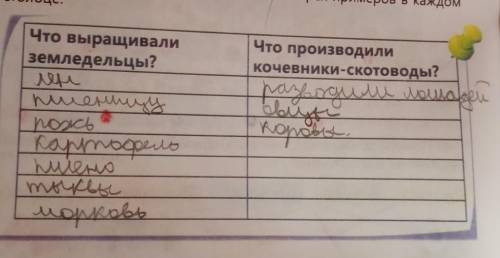 примеров в каждом
Что выращивали земледельцы?
Что производили кочевники-скотоводы?
лён
разводили лошадей
пшеницу
овцы
рожь
коровы.
картофель
пшено
тыквы
морковь